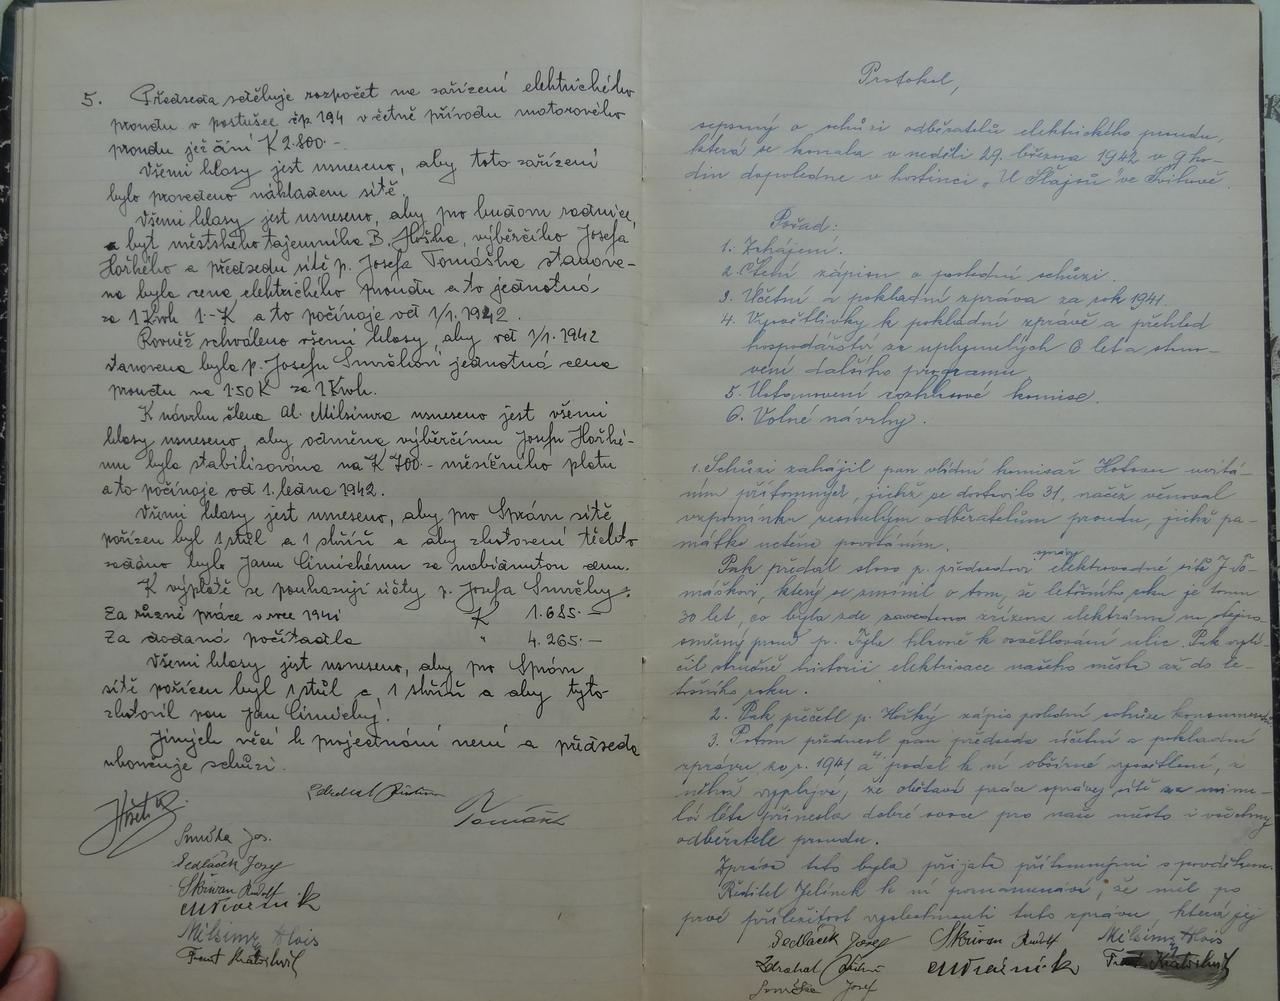 5. Předseda sděluje rozpočet na zařízení elektrického
proudu v postušce čp 194 v četně přívodu motorového
proudu jež činí K 2.800·-
Všemi hlasy jest usneseno, aby toto zařízení
bylo provedeno nákladem sítě.
Všemi hlasy jest usneseno, aby pro budovu radnice,
a byt městského tajemníka B. Hoška, výběrčího Josefa
Hořkého a předsedu sítě p. Josefa Tomáška stanove-
na byla cena elektrického proudu a to jednotná
za 1 Kwh 1·-K a to počínaje od 1/1. 1942.
Rovněž schváleno všemi hlasy aby od 1/1. 1942
stanovena byla p. Josefu Smrčkovi jednotná cena
proudu na 1·50 K za 1 Kwh.
K návrhu člena Al. Milsimra usneseno jest všemi
hlasy usneseno, aby odměna výběrčímu Josefu Hořké-
mu byla stabilisována na K 700·- měsíčního platu
a to počínaje od 1. ledna 1942.
Všemi hlasy jest usneseno, aby pro Správu sítě
pořízen byl 1 stůl a 1 skříň a aby zhotovení těchto
zadáno bylo Janu Cimickému za nabídnutou cenu.
K výplatě se poukazují účty p. Josefa Smrčky:
Za různé práce v roce 1941 K 1.685·—
Za dodaná počítadla " 4.265·—
Všemi hlasy jest usneseno, aby pro Správu
sítě pořízen byl 1 stůl a 1 skříň a aby tyto
zhotovil pan Jan Cimický.
Jiných věcí k projednání není a předseda
ukončuje schůzi.
Zdrahal
Tomášek
Smrčka Jos.
Sedláček Josef
Skřivan Rudolf
Milsimr Alois
Frant Kratochvíl
Protokol,
sepsaný o schůzi odběratelů elektrického proudu,
která se konala v neděli 29. března 1942 v 9 ho-
din dopoledne v hostinci „U Šlajsů" ve Švihově.
Pořad:
1. Zahájení.
2. Čtení zápisu o poslední schůzi.
3. Účetní a pokladní zpráva za rok 1941.
4. Vysvětlivky k pokladní zprávě a přehled
hospodářství za uplynulých 6 let a stano-
vení dalšího programu.
5. Ustanovení rozhlasové komise.
6. Volné návrhy.
1. Schůzi zahájil pan vládní komisař uvítá-
ním přítomných, jichž se dostavilo 31, načež věnoval
vzpomínku zesnulým odběratelům proudu, jichž pa-
mátka uctěna povstáním.
Pak předal slovo p. předsedovi správy elektrovodné sítě J. To-
máškovi, který se zmínil o tom, že letošního roku je tomu
30 let, co byla zde zavedena zřízena elektrárna na stejno-
směrný proud p. Tyle hlavně k osvětlování ulic. Pak vylí-
čil stručně historii elektrisace našeho města až do le-
tošního roku.
2. Pak přečetl p. Hořký zápis poslední schůze konsumentů
3. Potom přednesl pan předseda účetní a pokladní
zprávu za r. 1941 a podal k ní obšírné vysvětlení, z
něhož vyplývá, že obětavá práce správy sítě za minu-
lá léta přinesla dobré ovoce pro naše město i všechny
odběratele proudu.
Zpráva tato byla přijata přítomnými s povděkem.
Ředitel Jelínek k ní poznamenává, že měl po
prvé příležitost vyslechnouti tuto zprávu, která jej
Sedláček Josef Skřivan Rudolf Milsimr Alois
Zdrahal Frant Kratochvíl
Smrčka Josef